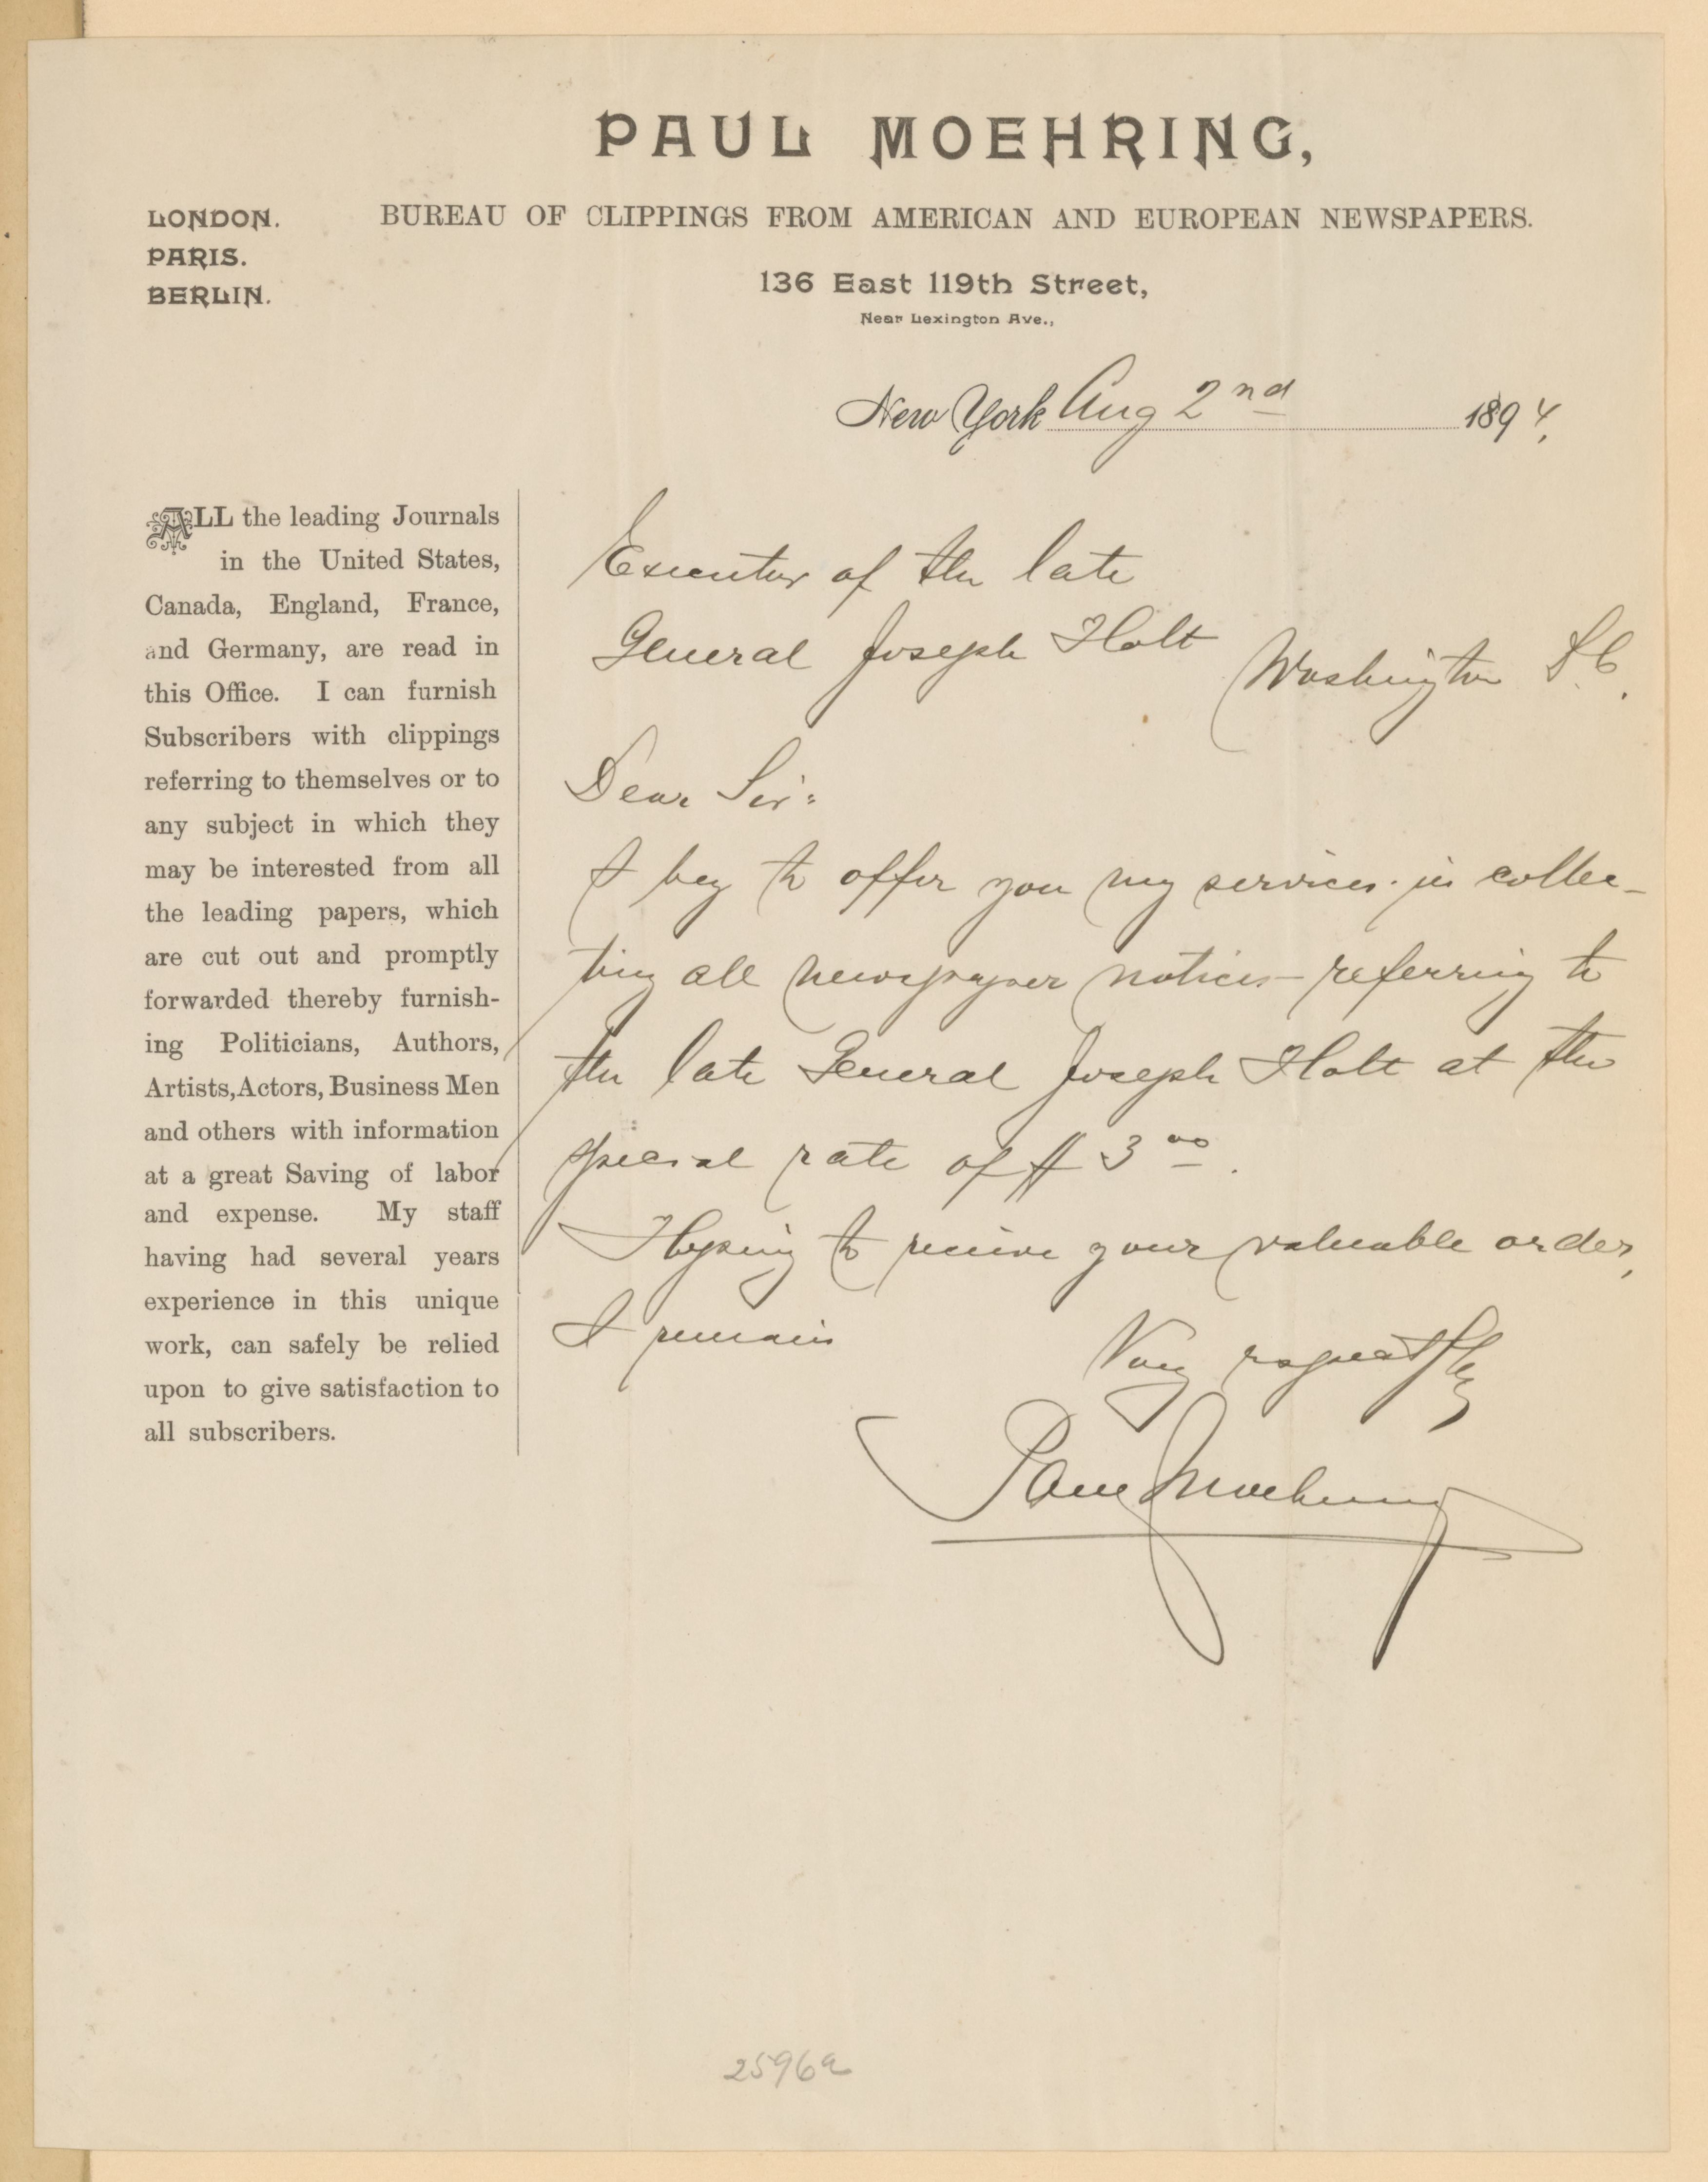 PAUL MOEHRING,
LONDON.
PARIS.
BERLIN.
BUREAU OF CLIPPINGS FROM AMERICAN AND EUROPEAN NEWSPAPERS.
136 East 119th Street,
Near Lexington Ave.,
New York Aug 2nd 1894,
ALL the leading Journals
in the United States,
Canada, England, France,
and Germany, are read in
this Office. I can furnish
Subscribers with clippings
referring to themselves or to
any subject in which they
may be interested from all
the leading papers, which
are cut out and promptly
forwarded thereby furnish-
ing Politicians, Authors,
Artists, Actors, Business Men
and others with information
at a great Saving of labor
and expense. My staff
having had several years
experience in this unique
work, can safely be relied
upon to give satisfaction to
all subscribers.
Executor of the late
General Joseph Holt Washington D.C.
Dear Sir:
I beg to offer you my services in collec-
ting all newspaper notices referring to
the late General Joseph Holt at the
special rate of $ 3 00.
Hoping to receive your valuable order,
I remain
Very respectfly
Paul Moehring
2596a